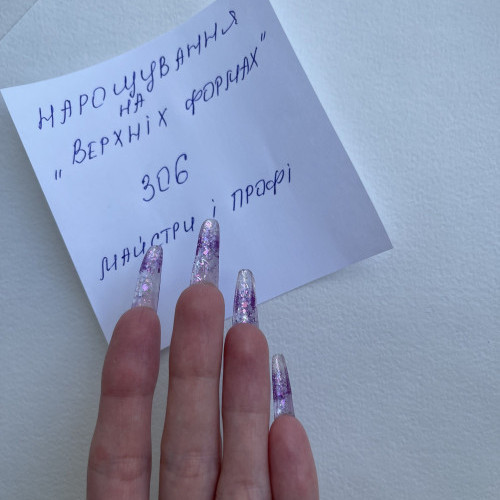 НАРОЩУВАННЯ
НА
"ВЕРХНІХ ФОРМАХ"
306
МАЙСТРИ І ПРОФІ